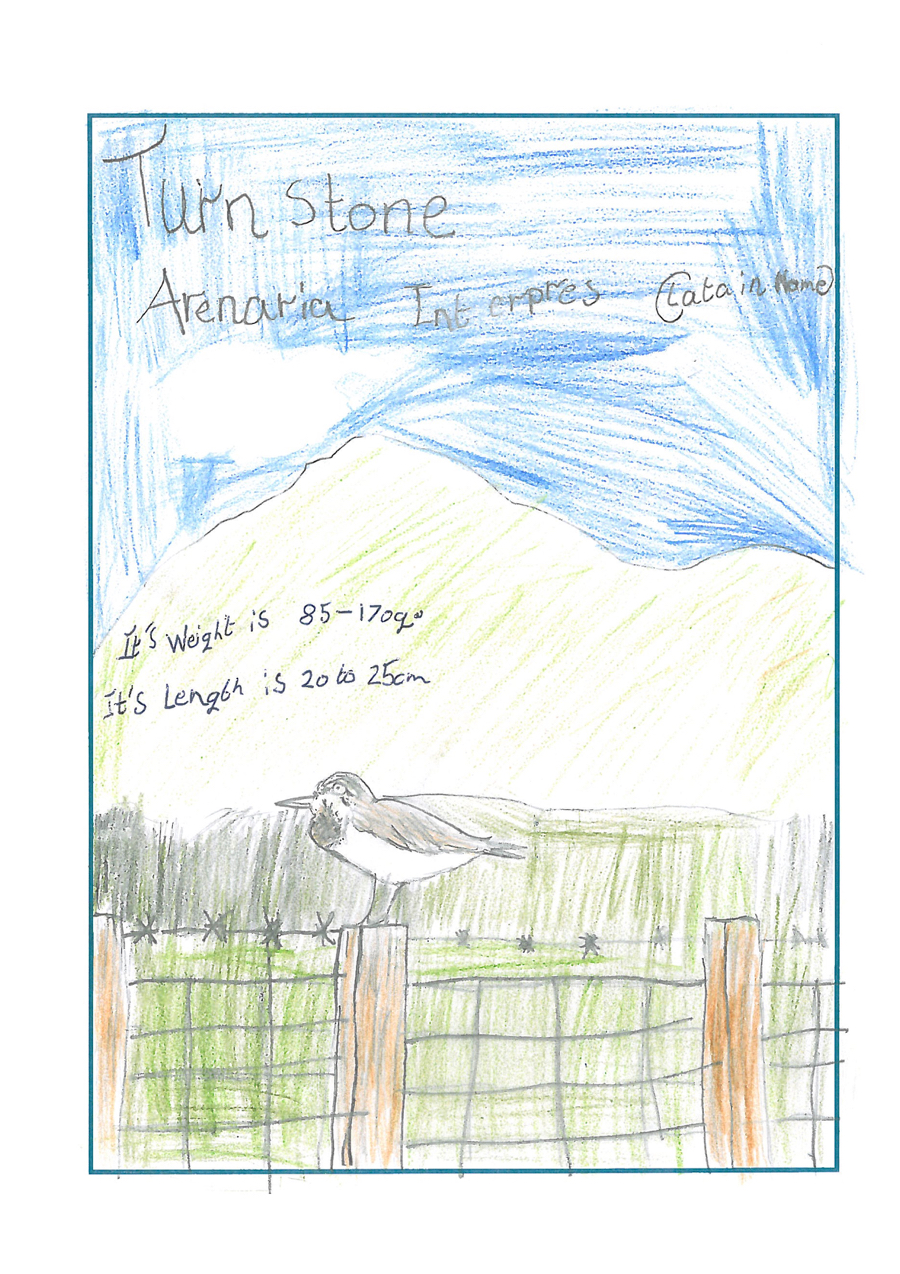 Turn Stone
Arenaria Interpres (Latain Name)
It's Weight is 85-170g.
It's Length is 20 to 25cm